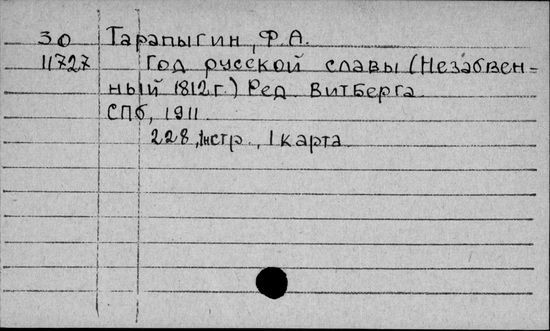 30 Тарапыгин, Ф.А.
11727 Год русской славы (Незабвен=
ный 1812 г.) Ред. Витберга
СПб, 1911
228, стр., 1 карта